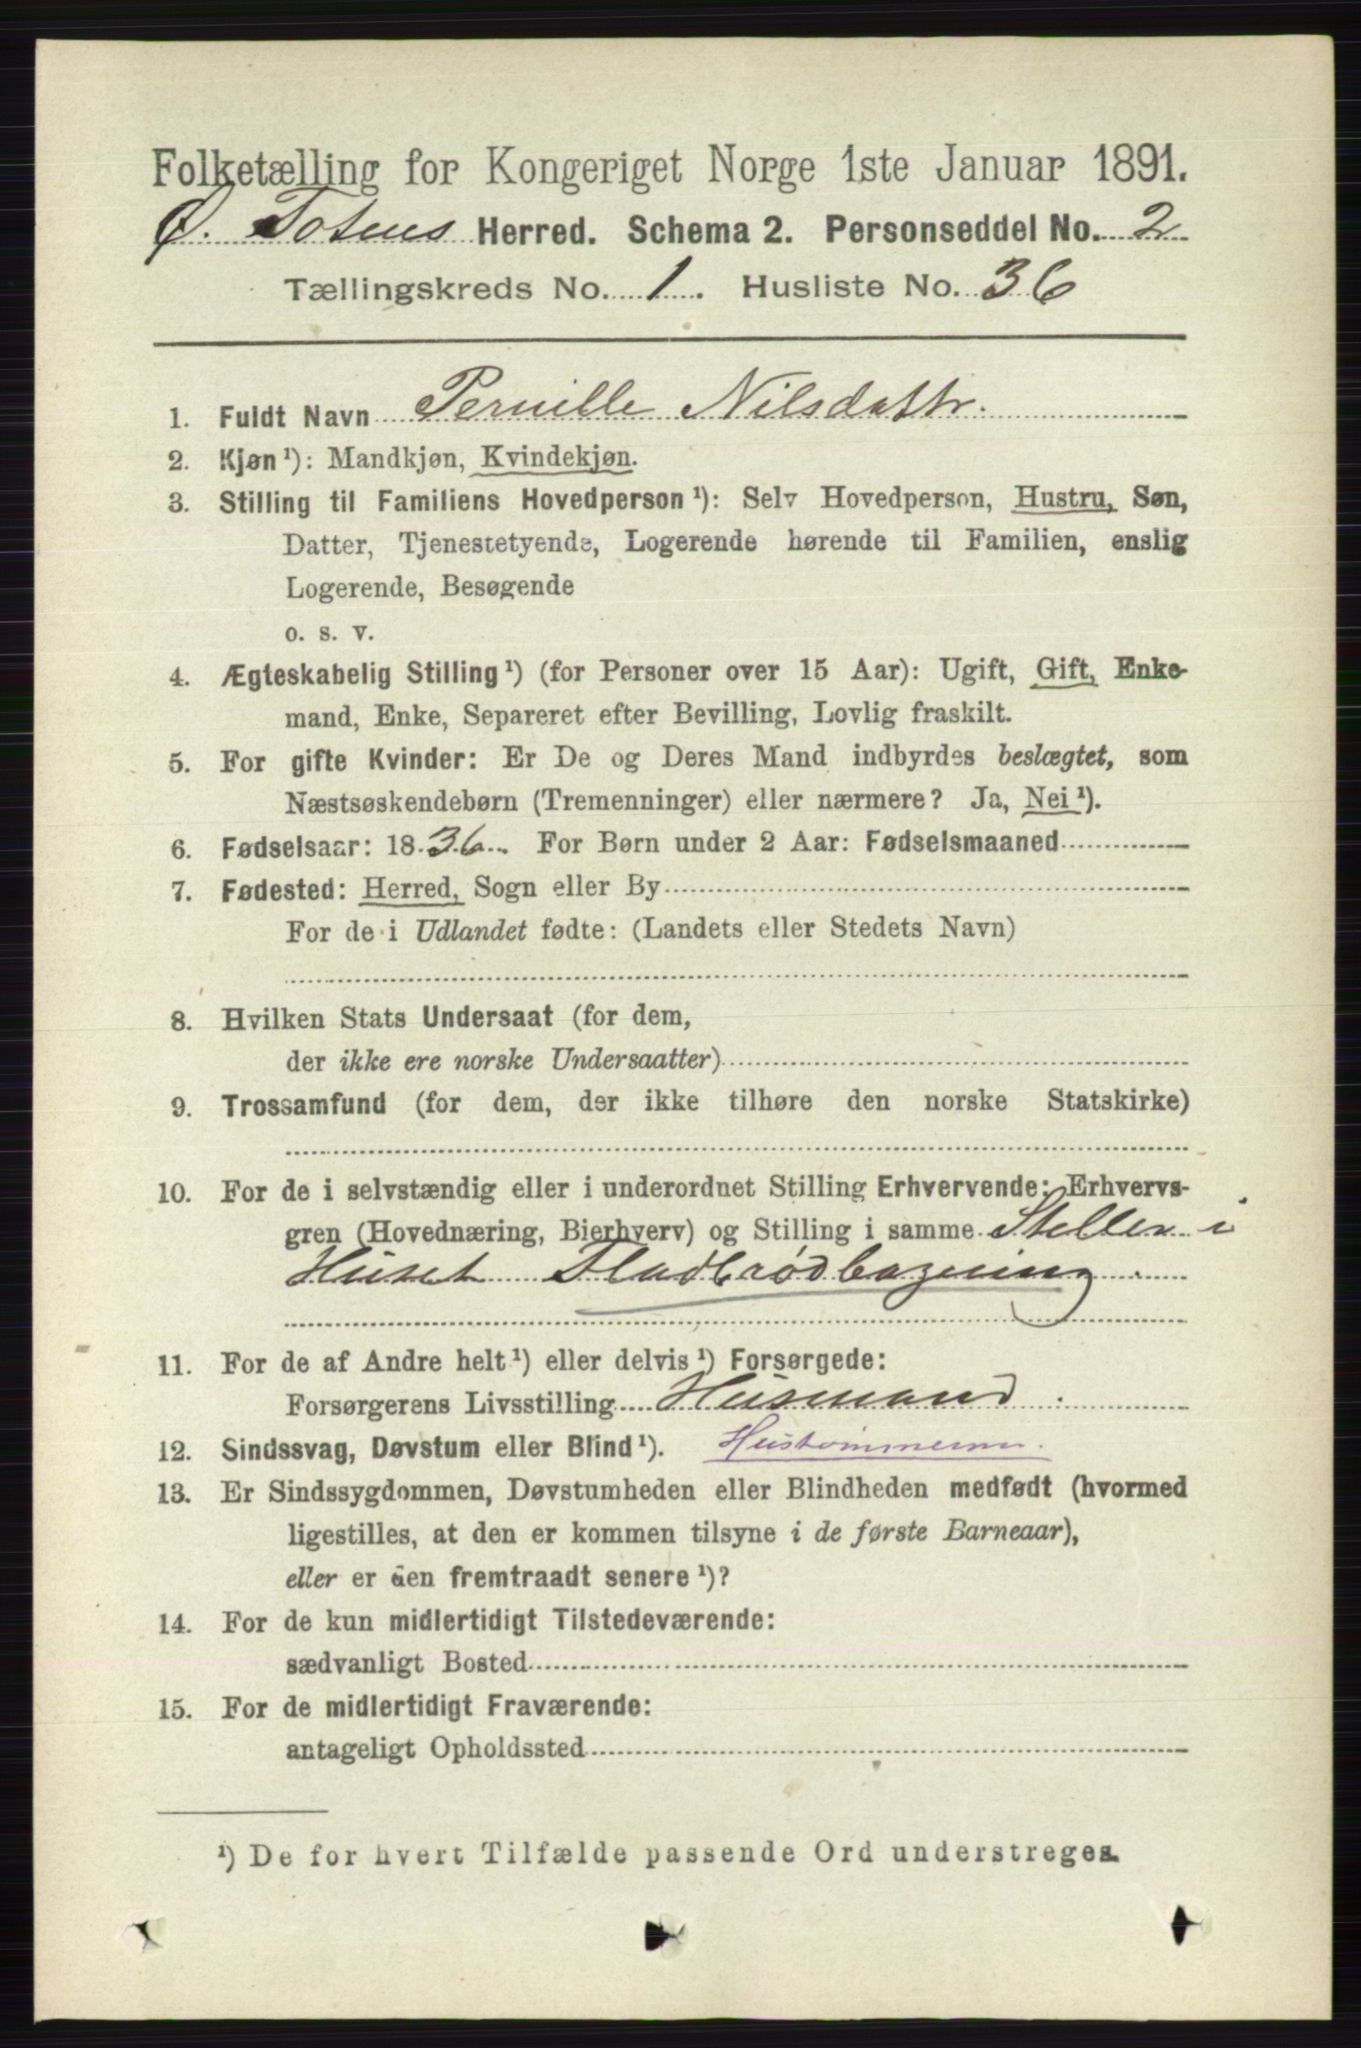 Folketælling for Kongeriget Norge 1ste Januar 1891.
Ø. Totens Herred. Schema 2. Personseddel No. 2
Tællingskreds No. 1. Husliste No. 36
1. Fuldt Navn Pernille Nilsdattr.
2. Kjøn¹): Mandkjøn, Kvindekjøn.
3. Stilling til Familiens Hovedperson¹): Selv Hovedperson, Hustru, Søn,
Datter, Tjenestetyende, Logerende hørende til Familien, enslig
Logerende, Besøgende
o. s. v.
4. Ægteskabelig Stilling¹) (for Personer over 15 Aar): Ugift, Gift, Enke-
mand, Enke, Separeret efter Bevilling, Lovlig fraskilt.
5. For gifte Kvinder: Er De og Deres Mand indbyrdes beslægtet, som
Næstsøskendebørn (Tremenninger) eller nærmere? Ja, Nei¹).
6. Fødselsaar: 1836. For Børn under 2 Aar: Fødselsmaaned
7. Fødested: Herred, Sogn eller By
For de i Udlandet fødte: (Landets eller Stedets Navn)
8. Hvilken Stats Undersaat (for dem,
der ikke ere norske Undersaatter)
9. Trossamfund (for dem, der ikke tilhøre den norske Statskirke)
10. For de i selvstændig eller i underordnet Stilling Erhvervende: Erhvervs-
gren (Hovednæring, Bierhverv) og Stilling i samme Steller i
Huset Fladbrødbagning.
11. For de af Andre helt¹) eller delvis¹) Forsørgede:
Forsørgerens Livsstilling Husmand.
12. Sindssvag, Døvstum eller Blind¹).
13. Er Sindssygdommen, Døvstumheden eller Blindheden medfødt (hvormed
ligestilles, at den er kommen tilsyne i de første Barneaar),
eller er den fremtraadt senere¹)?
14. For de kun midlertidigt Tilstedeværende:
sædvanligt Bosted
15. For de midlertidigt Fraværende:
antageligt Opholdssted
¹) De for hvert Tilfælde passende Ord understreges.